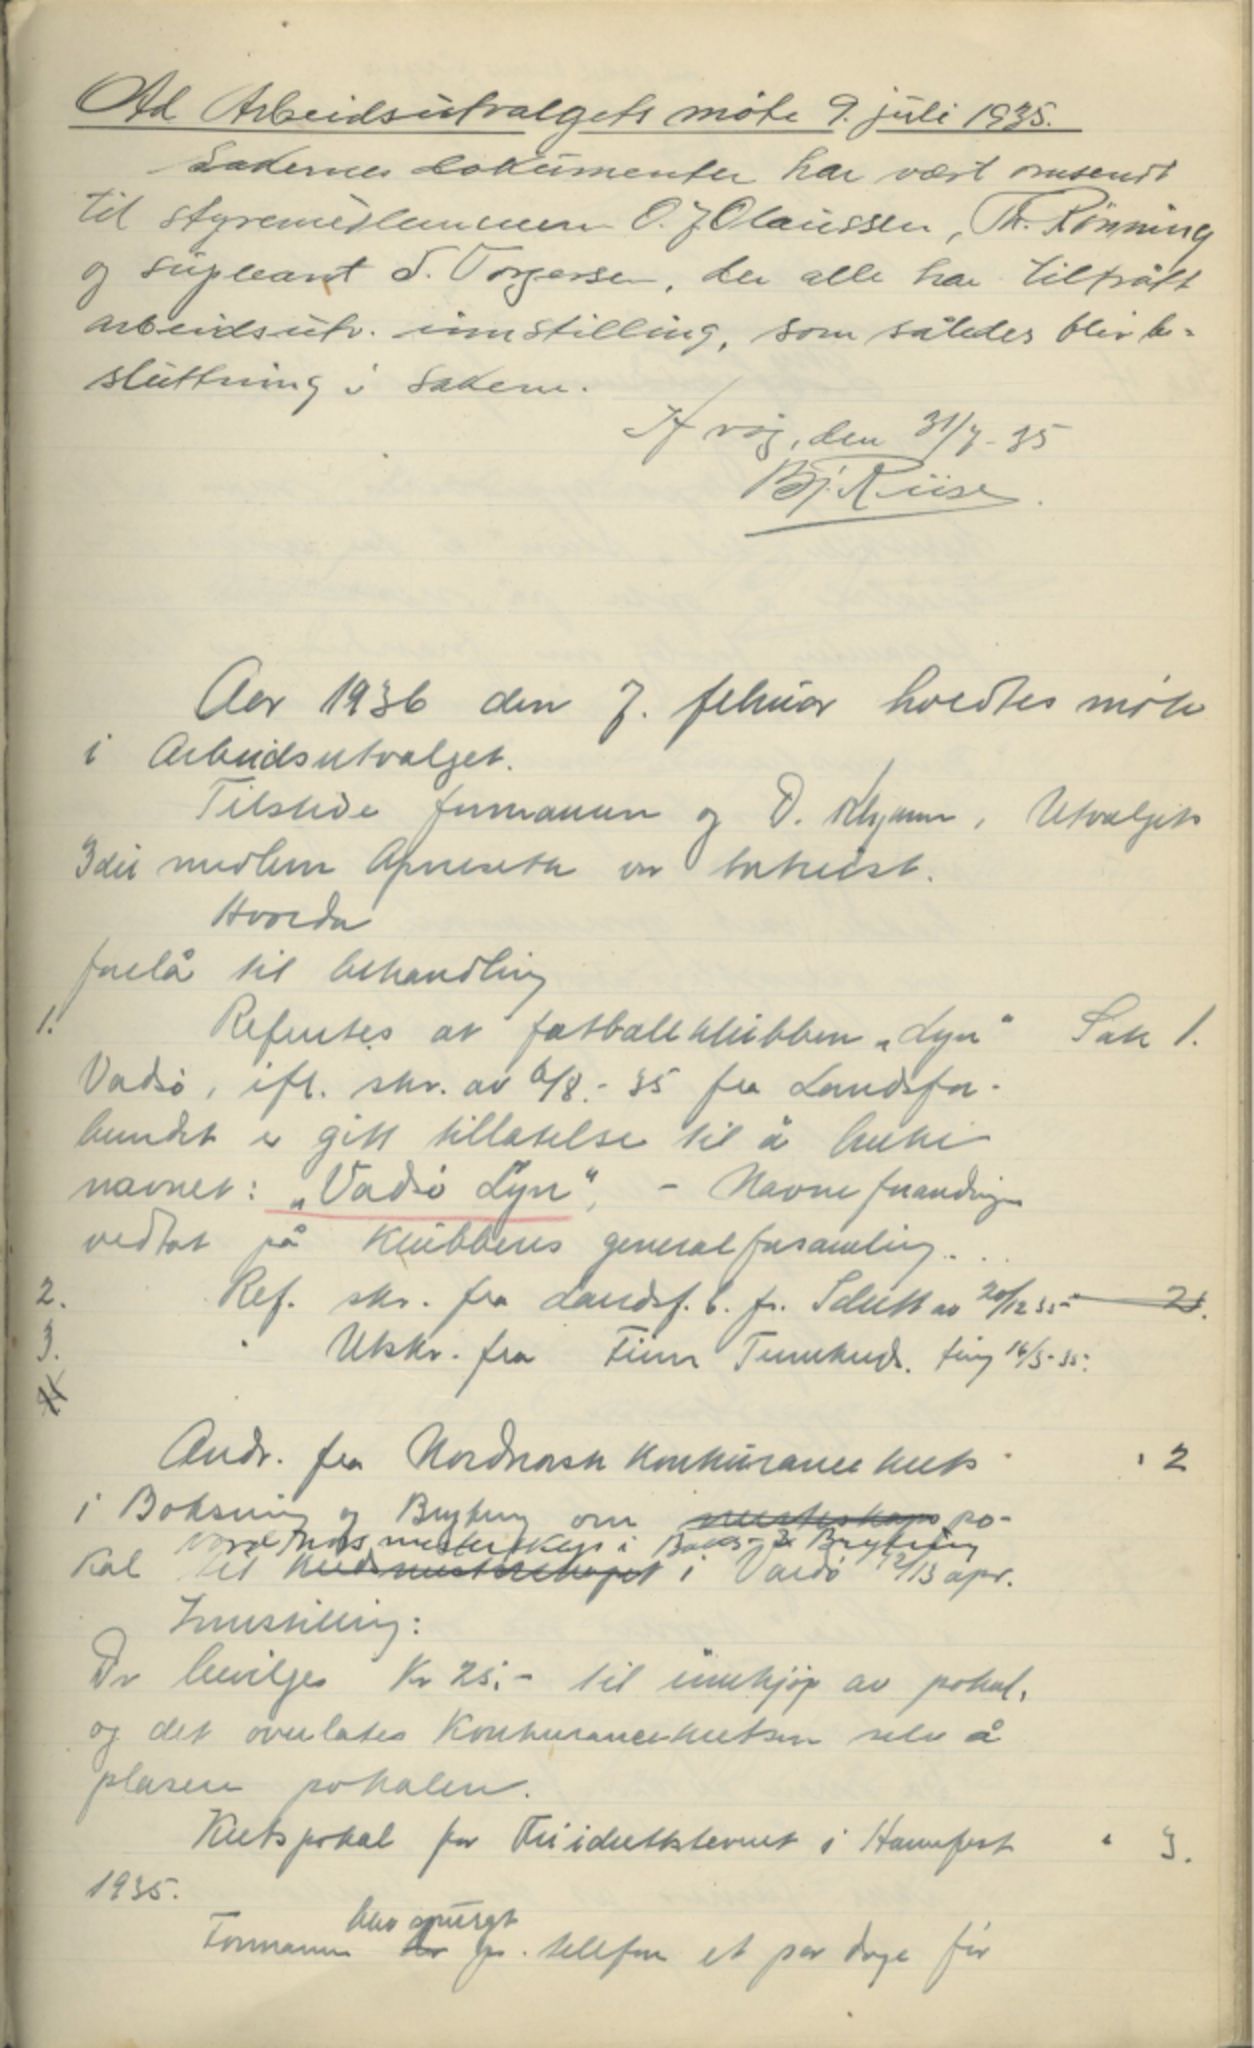 Ad Arbeidsutvalgets møte 9. juli 1935.
Sakernes dokumenter har vært omsendt
til styremedlemmene O. J Olaussen, Th. Rönning
og supleant S. Torgersen, der alle har tiltrått
arbeidsutv. innstilling, som således blir be-
sluttning i sakene.
H våg, den 31/7-35
Bj. Riise.
Aar 1936 den 7. februar holdtes møte
i Arbeidsutvalget.
Tilstede formannen og O. , Utvalgets
3die medlem var bortreist.
Hvorda
forelå til behandling
1. Refertes at fotballklubben „Lyn" Sak 1.
Vadsö, ifl. skr. av 6/8.-35 fra Landsfor-
bundet er gitt tillatelse til å bruke
navnet: „Vadsö Lyn", - Navneforandringen
vedtat på klubbens generalforsamling.
2. Ref. skr. fra Landsf. b. fr. Idrett av 20/12 35 2.
3. Utskr. fra Finn ting 16/5-35.
4
Andr. fra Nordnorsk Konkurransekrets " 2
i Boksning og Bryting om mesterskaps po-
Nord Norsk mesterskap i Boks- & Bryting
kal til kredsmesterskapet i Vardö 12/13 apr.
Innstilling:
Der bevilges Kr 25,- til innkjøp av pokal,
og det overlates Konkurransekretsen selv å
plasere pokalen.
Kretspokal for Friidrettstevnet i Hammerfest " 3.
1935.
blev spurgt
Formannen pr. telefon et par dage før